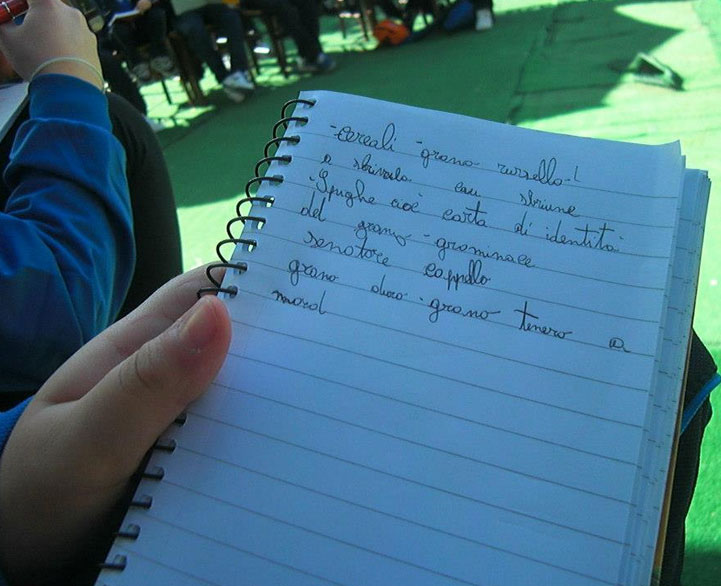 -cereali -grano russello-!
e con
-Spighe cioè carta di identità
del grano -graminace
senatore cappello
grano duro -grano tenero a
nord